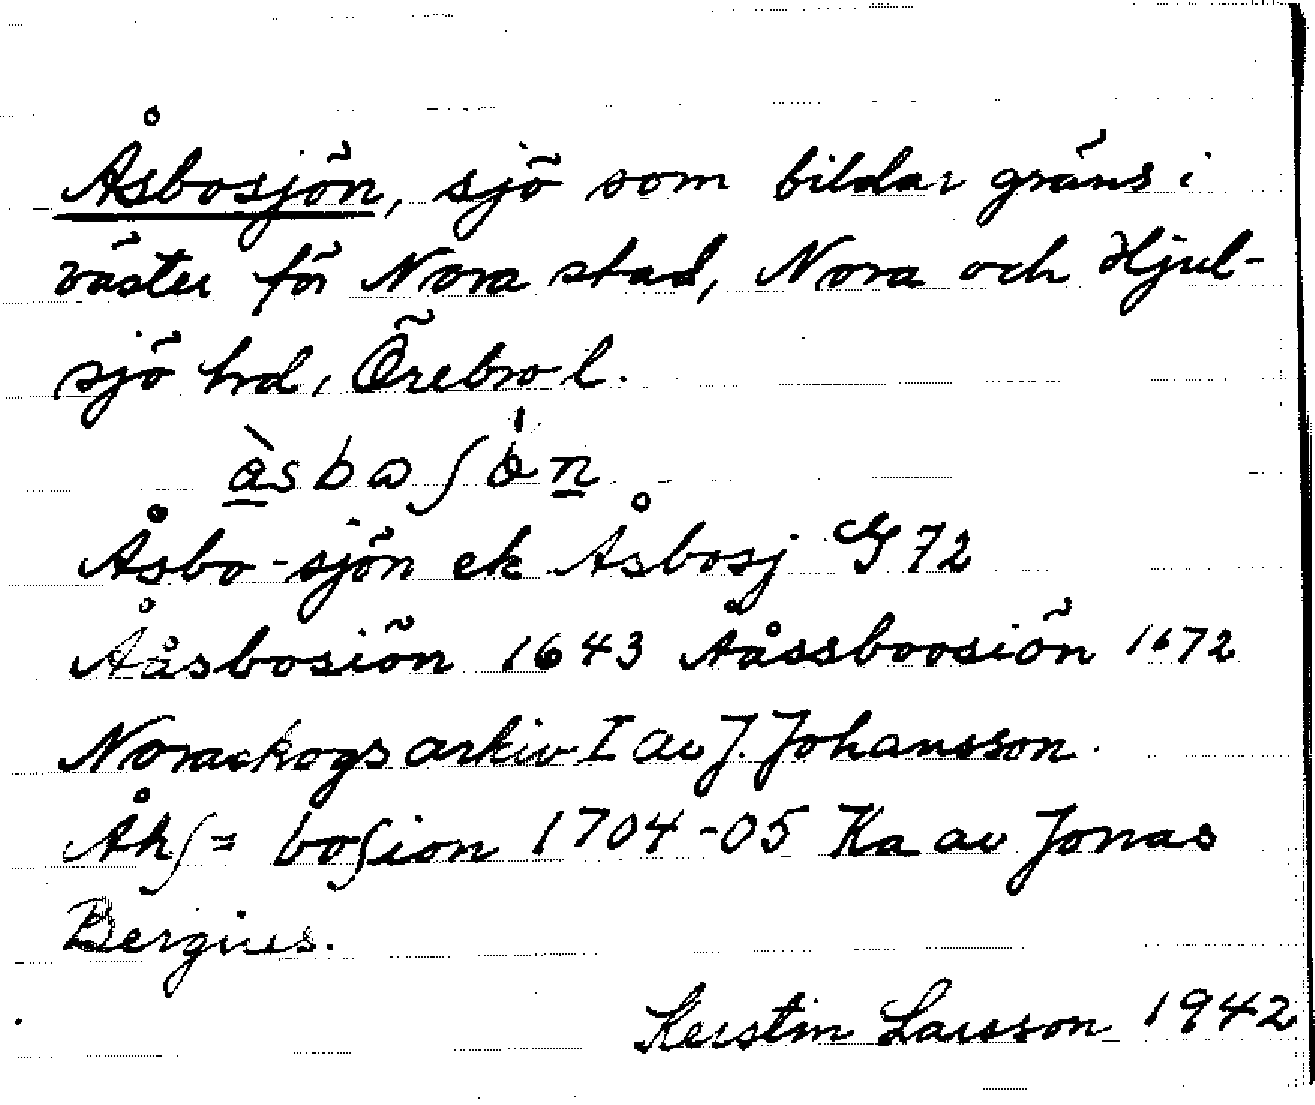 Åsbosjön, sjö som bildar gräns i
väster för Nora stad, Nora och Hjul-
sjö hrd, Örebro l.
Åsbo-sjön ek Åsbosj G 72
Ååsbosiön 1643 Aåssboosiön 1672
Noraskogs arkiv I av J. Johansson.
Åhſ= boſion 1704-05 Ka av Jonas
Bergius.
Kerstin Larsson 1942